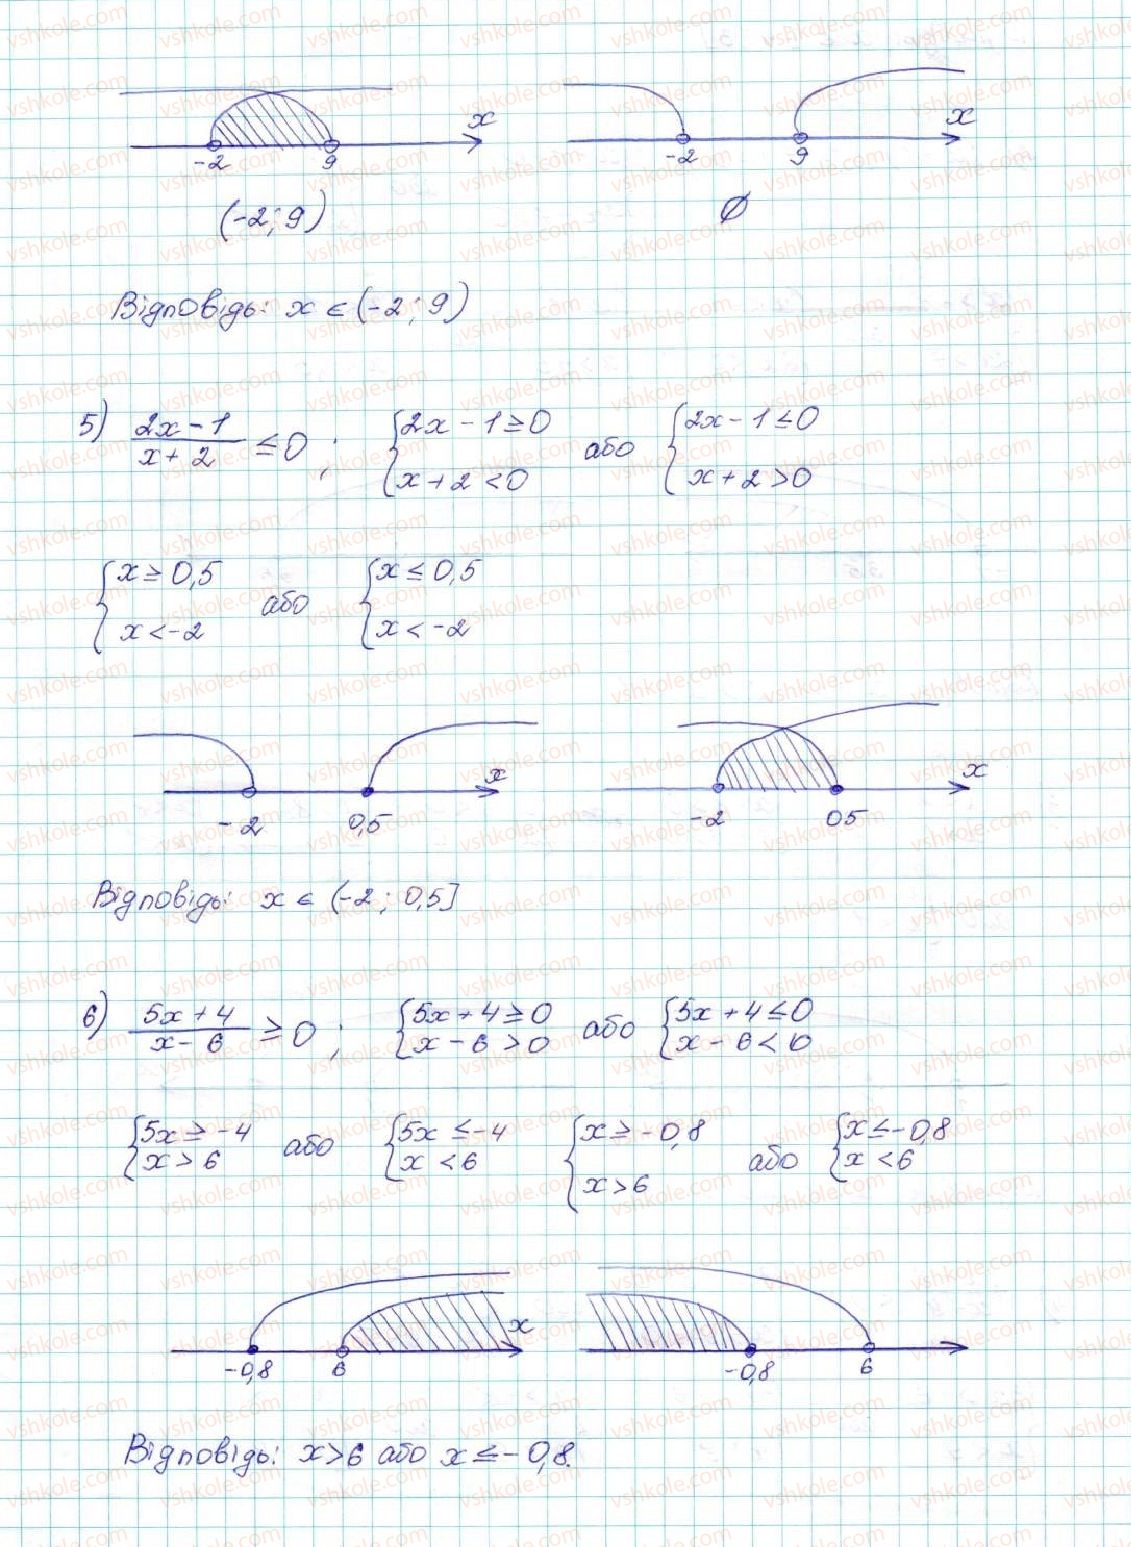 x x
-2 9 -2 9
(-2; 9) ∅
Відповідь: x ∈ (-2; 9)
5) (2x - 1)/(x + 2) ≤ 0; {2x - 1 ≥ 0 x + 2 < 0 або {2x - 1 ≤ 0 x + 2 > 0
{x ≥ 0,5 x < -2 або {x ≤ 0,5 x < -2
x x
-2 0,5 -2 05
Відповідь: x ∈ (-2; 0,5]
6) (5x + 4)/(x - 6) ≥ 0; {5x + 4 ≥ 0 x - 6 > 0 або {5x + 4 ≤ 0 x - 6 < 0
{5x ≥ -4 x > 6 або {5x ≤ -4 x < 6 {x ≥ -0,8 x > 6 або {x ≤ -0,8 x < 6
x
-0,8 6 -0,8 6
Відповідь: x > 6 або x ≤ -0,8.
vshkole.com